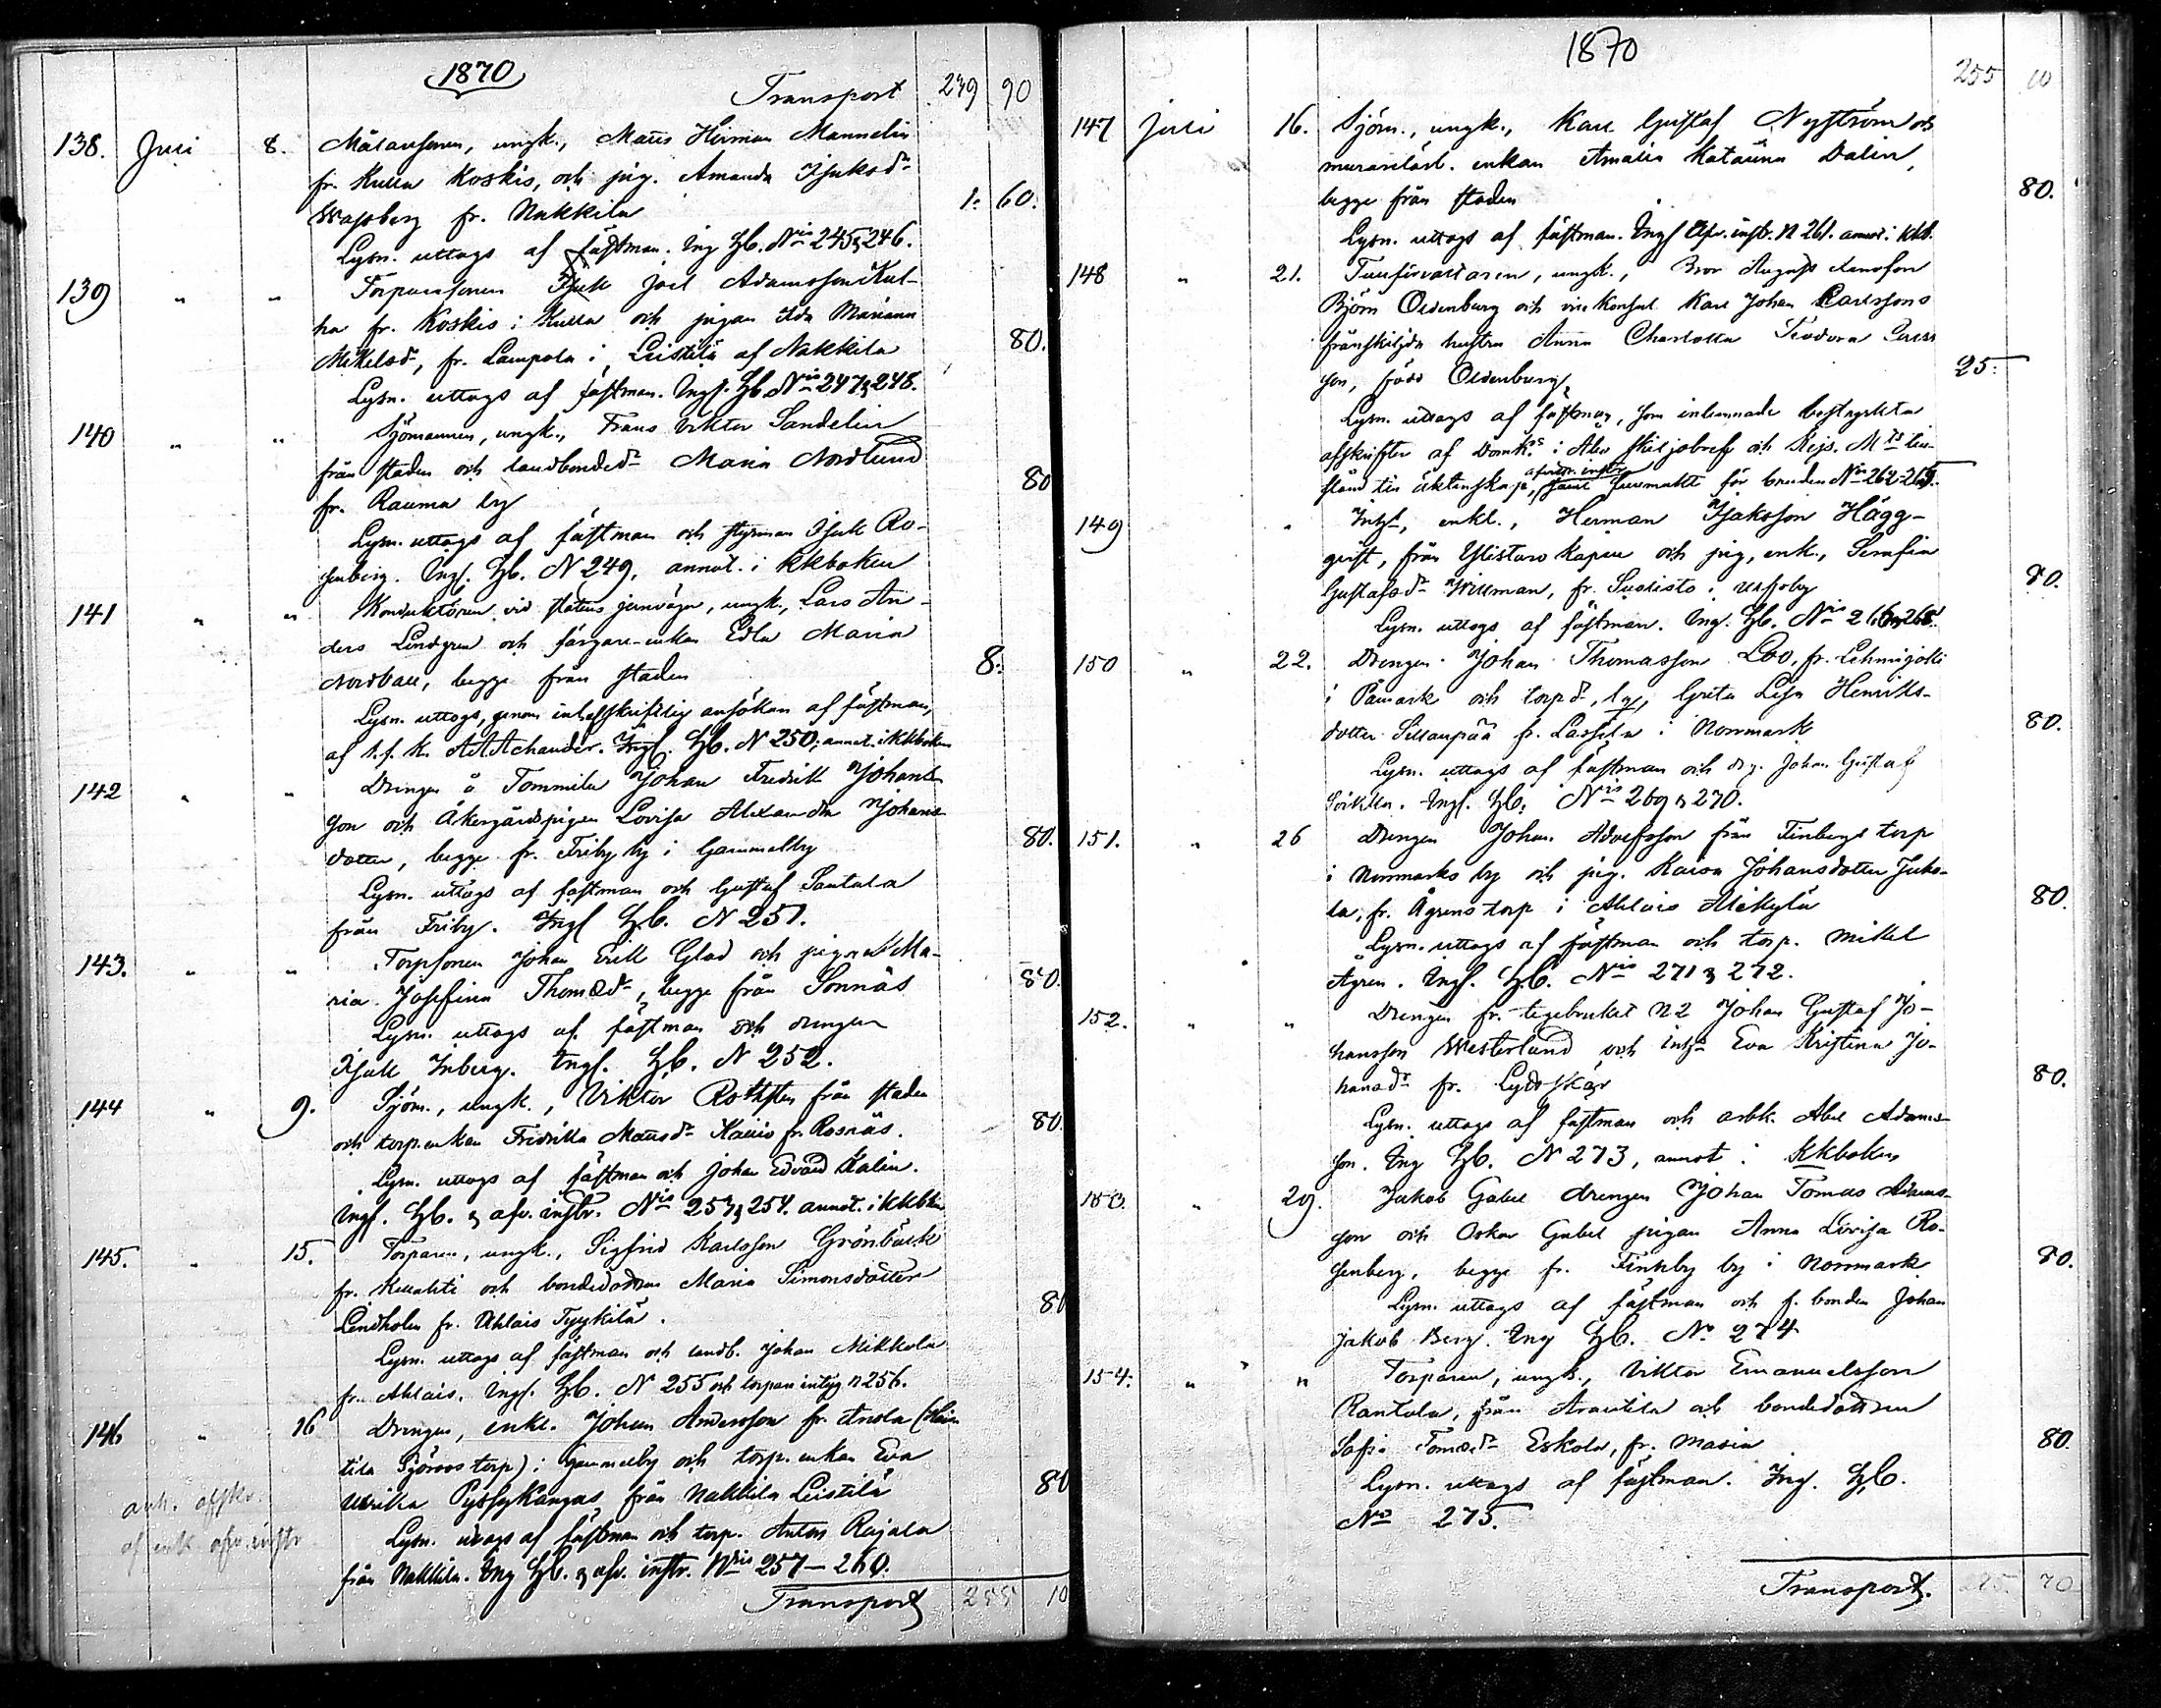 1870
Transport 249 90
138. Juli 8. Målaresonen, ungk., Matts Herman Mannelin
fr. Kulla Koskis, och pig. Amanda Isaksdr
Wassberg fr. Nakkila 1: 60.
Lysn. uttogs af fästman. Ing Hb. Nris 245 & 246.
139 " " Torparesonen Isak Joel Adamsson Kul-
ha fr. Koskis i Kulla och pigan Ida Mariana
Mikelsdr, fr. Lampola i Leistilä af Nakkila 80.
Lysn. uttogs af fästman. Ingf. Hb. Nris 247 & 248.
140 " " Sjömannen, ungk., Frans Viktor Sandelin
från staden och landbondedr Maria Nordlund
fr. Rauma by 80
Lysn. uttogs af fästman och styrman Isak Ro-
senberg. Ingf. Hb. N 249, annot. i kkboken
141 " " Konduktören vid statens jernvägar, ungk., Lars An-
ders Lindgren och färgare-enkan Edla Maria
Nordvall, begge från staden 8:
Lysn. uttogs, genom skriftlig ansökan af fästman,
af A A Achander. Ingf. Hb. N 250, annot. i kkboken
142 " " Drengen å Tommila Johan Fredrik Johans-
son och Åkergårdspigan Lovisa Alexandra Johans-
dotter, begge fr. Friby by i Gammelby 80.
Lysn. uttogs af fästman och Gustaf Santala
från Friby. Ingf Hb. N 251.
143. " " Torpsonen Johan Erik Glad och pigan Ma-
ria Josefina Thomædr, begge från Sonnäs 80.
Lysn. uttogs af fästman och drengen
Isak Inberg. Ingf. Hb. N 252.
144 " 9. Sjöm., ungk., Viktor Rothsten från staden
och torp.enkan Fredrika Mattsdr Kallio fr. Rosnäs. 80.
Lysn. uttogs af fästman och Johan Edvard Kalin.
Ingf. Hb. & afv. instr. Nris 253 & 254. annot. i kkboken
145. " 15. Torparen, ungk., Sigfrid Karlsson Grönbäck
fr. Kellahti och bondedottren Maria Simonsdotter
Lindholm fr. Ahlais Tyykilä. 80
Lysn. uttogs af fästman och landb. Johan Mikkola
fr. Ahlais. Ingf. Hb. N 255 och torpare intyg N 256.
146 " 16 Drengen, enkl. Johan Andersson fr. Anola (
tila Sjöroos torp) i Gammelby och torp. enkan Eva
Ulrika Pyssykangas från Nakkila Leistilä 80
Lysn. uttogs af fästman och torp. Anton Rajala
från Nakkila. Ing Hb. & afv. instr. Nris 257 — 260.
anh. afskr.
af enk. afv. instr
Transport 255 10
1870
255 10
147 Juli 16. Sjöm., ungk., Karl Gustaf Nyström och
murarelärl. enkan Amalia Katarina Dalin,
begge från staden 80.
Lysn. uttogs af fästman. Ingf Afv. instr. N 261. annot. i kkb.
148 " 21. Tullförvaltaren, ungk., Bror August Xenofon
Björn Oldenburg och vice Konsul Karl Johan Carlssons
frånskiljda hustru Anna Charlotta Teodora Carls
son, född Oldenburg, 25:
Lysn. uttogs af fästman, som inlemnade bestyrkta
afskrifter af Domk:s i Åbo skiljobref och Kejs. M:ts till-
stånd till äktenskap, afvittr. instr. fullmakt för bruden Nris 262-265.
149 " Inhs, enkl., Herman Isaksson Hägg-
qvist, från Ylistaro kapell och pig, enk., Serafia
Gustafsdr Willman, fr. Suolisto i Ulfsby 80.
Lysn. uttogs af fästman. Ing. Hb. Nris 266-268.
150 " 22. Drengen Johan Thomasson Loo, fr. Lehmijoki
i Påmark och torpdr, lg, Greta Lisa Henriks-
dotter Sillanpää fr. Lassila i Norrmark 80.
Lysn. uttogs af fästman och drg. Johan Gustaf
Sörkka. Ingf. Hb. Nris 269 & 270.
151. " 26 Drengen Johan Adolfsson från Finbergs torp
i Norrmarks by och pig. Kaisa Johansdotter Juko-
la, fr. Ågrens torp i Ahlais Alakylä 80.
Lysn. uttogs af fästman och torp. Mikel
Ågren. Ingf. Hb. Nris 271 & 272.
152. " " Drengen fr. tegelbruket N 2 Johan Gustaf Jo-
hansson Westerlund och inhs Eva Kristina Jo-
hansdr fr. Lyttskär 80.
Lysn. uttogs af fästman och arbk. Abel Adams-
son. Ing Hb. N 273, annot i Kkboken
153. " 29. Jakob Gabel drengen Johan Tomas Adams-
son och Oskar Gabel pigan Anna Lovisa Ro-
senberg, begge fr. Finnby by i Norrmark 80.
Lysn. uttogs af fästman och f. bonden Johan
Jakob Berg. Ing Hb. No 274
154. " " Torparen, ungk., Viktor Emanuelsson
Rantala, från Arantila och bondedottren
Sofia Tomasdr Eskola, fr. Masia 80.
Lysn. uttogs af fästman. Ing. Hb.
No 275.
Transport. 295. 70